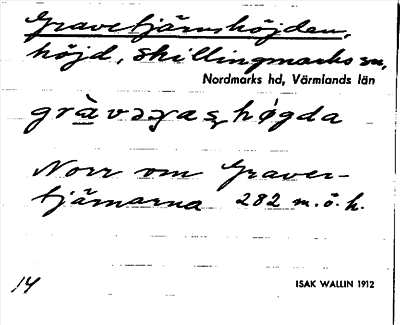 Gravetjärnshöjden,
höjd, Skillingmarks sn,
Nordmarks hd, Värmlands län
Norr om Graver-
tjärnarna 282 m.ö.h.
14
ISAK WALLIN 1912